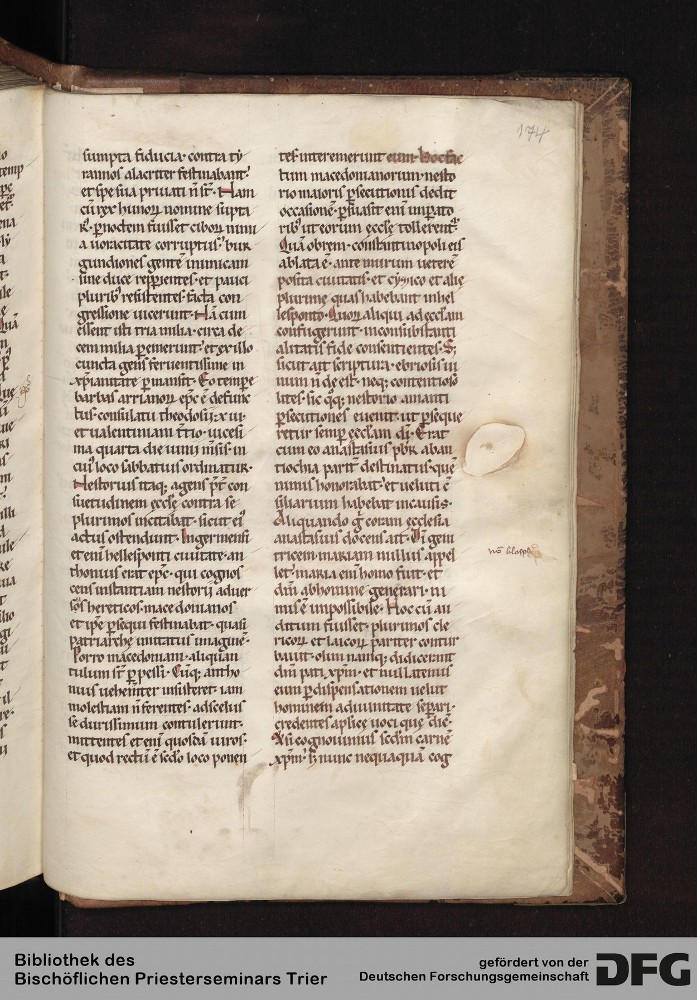 174
sumpta fiducia· contra tẏ
rannos alacriter festinabant·
et spe sua priuati n̄ st̄· Nam
cū rex hunoꝝ nomine supta
noctem fuisset ciboꝝ nimi
a uoracitate corruptus· bur
gundiones gentē inimicam
sine duce repperientes· et pauci
pluribꝰ resistentes· facta con
gressione uicerunt· Nā cum
essent isti tria milia· circa de
cem milia ꝑemerunt· et ex illo
cuncta gens feruentissime in
xp̄ianitate ꝑmansit· Eo tempe
barbas arrianoꝝ epc̄ ē defunc
tus· consulatu theodosii· xiii·
et ualentiniani t̄tio· uicesi
ma quarta die iunij m̄sis· in
cuiꝰ loco sabbatius ordinatur·
Nestorius itaq; agens p̄t con
suetudinem ęccl̄ę contra se
plurimos incitabat· sicut eiꝰ
actus ostendunt· In germeni
et eni hellesponti ciuitate· an
thonius erat epc̄· qui cognos
cens instantiam nestorij aduer
sꝰ hereticos· macedonianos
et ip̄e ꝑsequi festinabat· quasi
patriarchę imitatus imaginē·
Porro macedoniani· aliquan
tulum st̄ ꝑpessi· Cūq; antho
nius uehemt̄er insisteret· iam
molestiam n̄ ferentes· ad scelus
se durissimum contulerunt·
mittentes et eni quosdā uiros·
et quod rectū ē sed̄o loco ponen
tes· interemerunt eum· Hoc fac
tum macedonianorum· nesto
rio maioris ꝑsecutionis dedit
occasionē· ꝑsuasit eni imperato
ribꝰ ut eorum ęccl̄ę tollerent᷑·
Quā obrem· constantinopoli eis
ablata ē· ante murum ueterē
posita ciuitatis· et cẏzico et alie
plurime quas habebant in hel
lesponto· Quoꝝ aliqui ad ęccl̄am
confugerunt· in consubstanti
alitatis fide consentientes· S;
sicut ait scriptura· ebriosis ui
num n̄ deest· neq; contentioso
lites· sic q̊q; nestorio amanti
ꝑsecutiones euenit· ut ꝑseque
retur semper ęccl̄am dī· Erat
cum eo anastasius pb̄r· ab an
tiochia parit᷑ destinatus· quē
nimis honorabat· et ueluti c̄
siliarium habebat in causis·
Aliquando g̊ coram ecclesia
anastasius docens ait· Dī geni
tricem mariam nullus appel
let· maria eni homo fuit· et
dm̄ ab homine generari· ni
mis ē impossibile· Hoc cū au
ditum fuisset· plurimos cle
ricoꝝ et laicoꝝ pariter contur
bauit· olim namq; didicerunt
dm̄ pati xp̄m· et nullatenus
eum ꝑ dispensationem uelut
hominem a diuinitate separi·
credentes aplicę uoci quę dic̄·
Xsi cognouimus sed̄m carnē
xp̄m· s; nunc nequaquā cog
Bibliothek des
Bischöflichen Priesterseminars Trier
gefördert von der
Deutschen Forschungsgemeinschaft
DFG